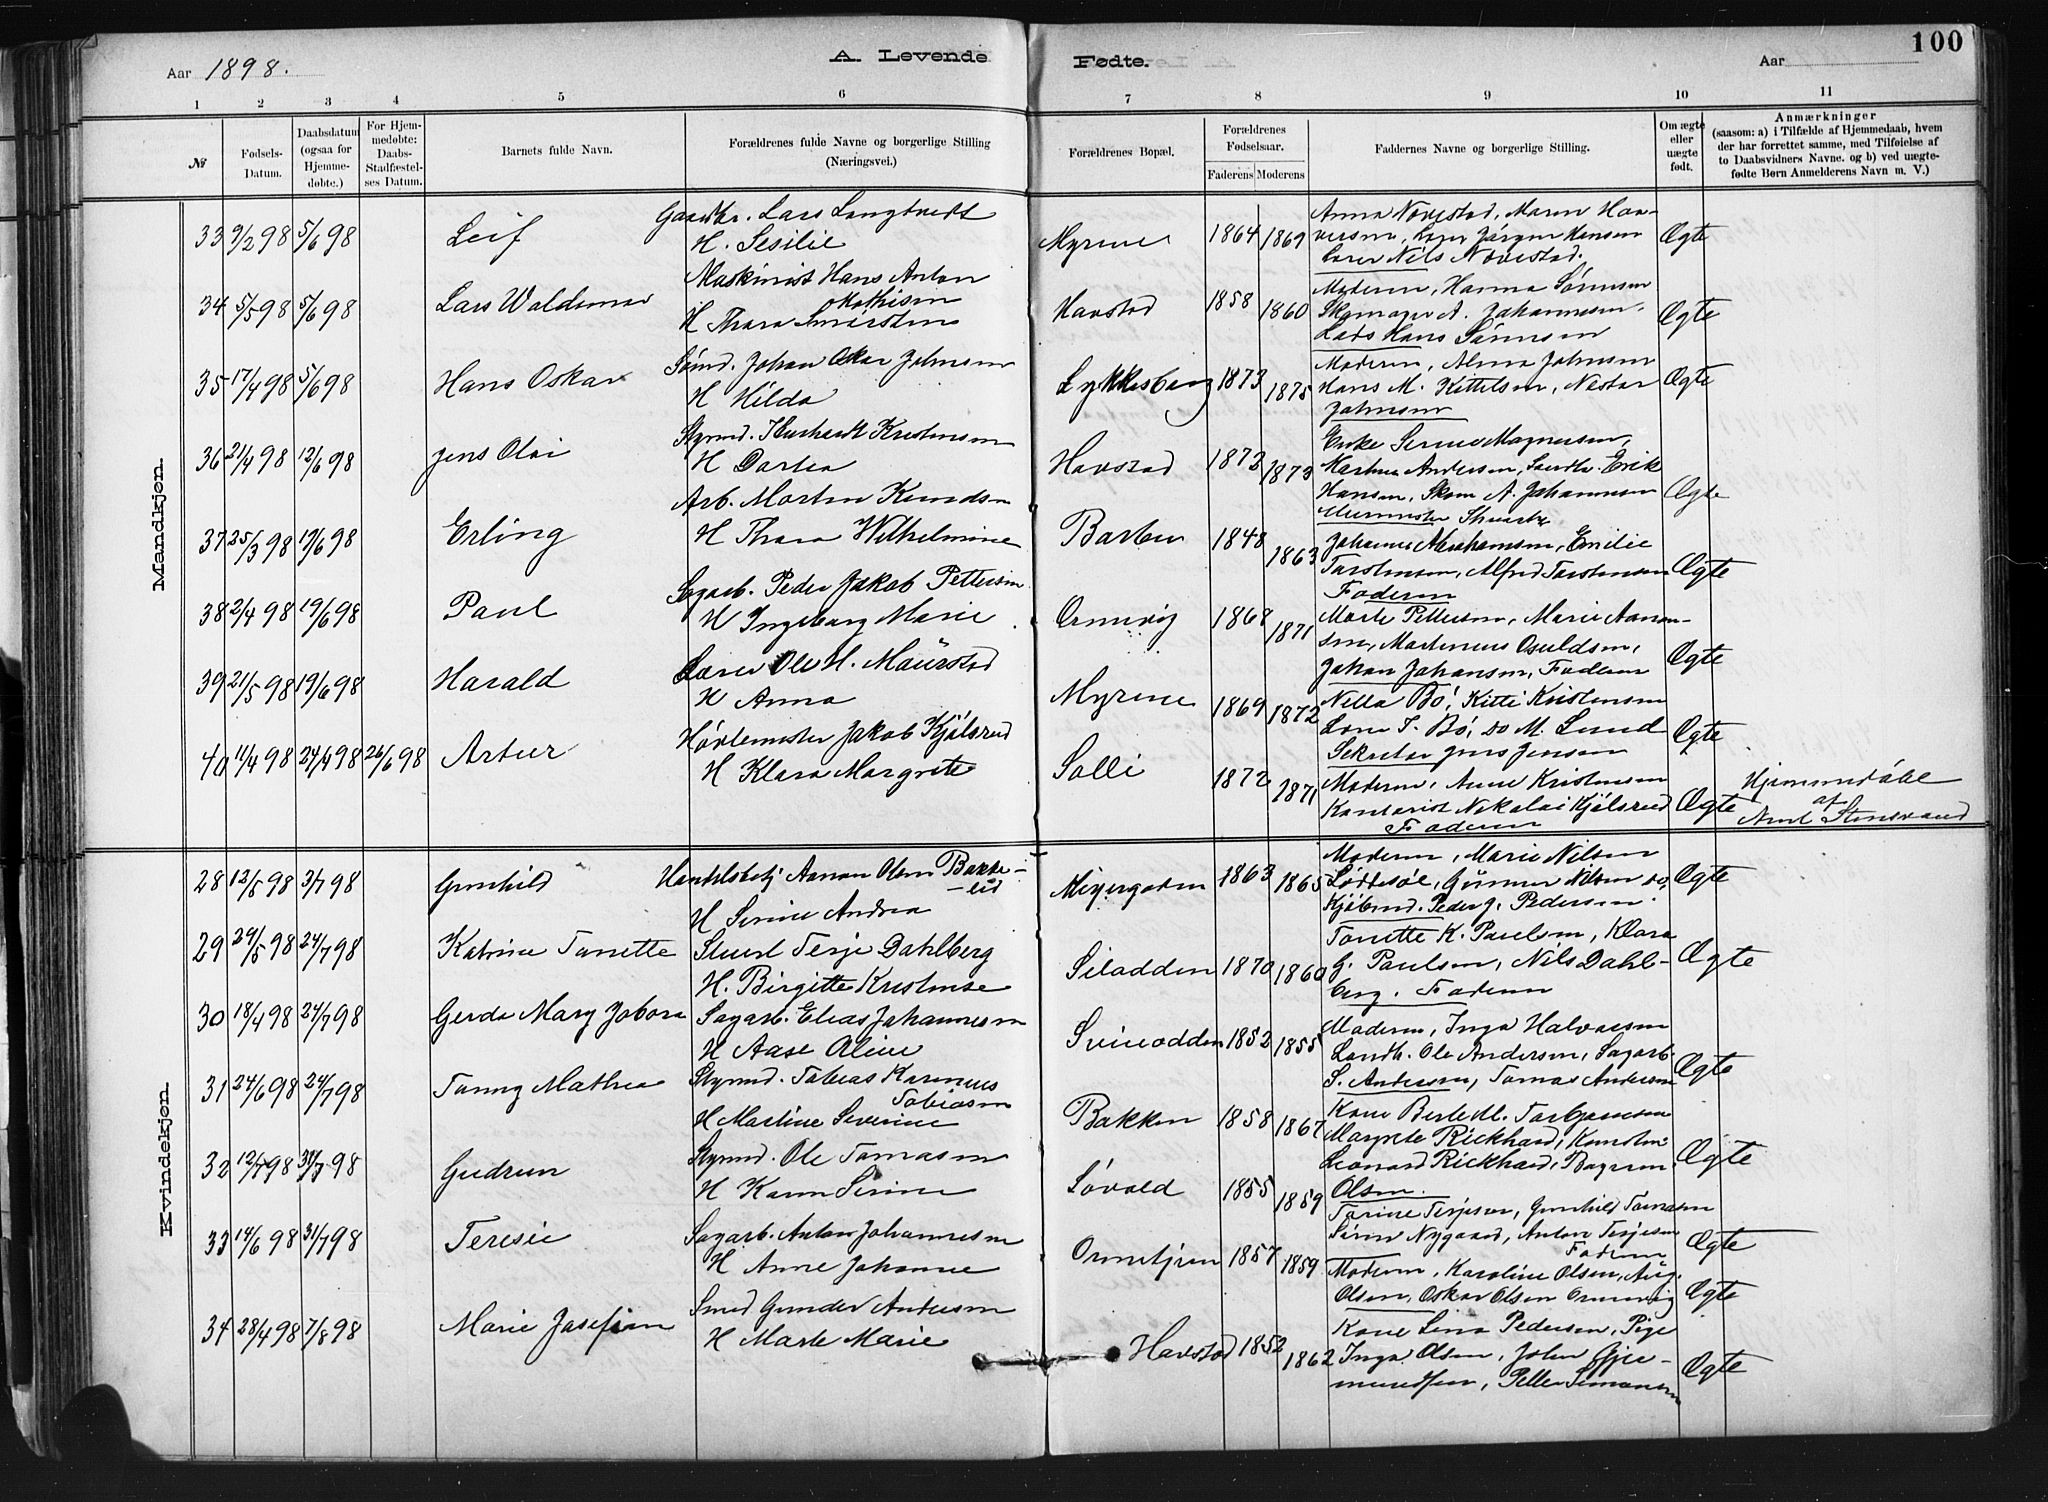 Aar 1898.
A. Levende Fødte.
Aar
100
1 2 3 4 5 6 7 8 9 10 11
№
Fødsels-Datum.
Daabsdatum (ogsaa for Hjemme-døbte.)
For Hjem-medøbte: Daabs-Stadfæstel-ses Datum.
Barnets fulde Navn.
Forældrenes fulde Navne og borgerlige Stilling (Næringsvei.)
Forældrenes Bopæl.
Forældrenes Fødselsaar.
Faderens Moderens
Faddernes Navne og borgerlige Stilling.
Om ægte eller uægte født.
Anmærkninger
(saasom: a) i Tilfælde af Hjemmedaab, hvem der har forrettet samme, med Tilføielse af to Daabsvidners Navne. og b) ved uægte-fødte Børn Anmelderens Navn m. V.)
Mandkjøn.
33 9/2 98 5/6 98 Leif
Gaardbr. Lars Langtvedt
H. Sesilie
Myrene 1864 1869
Anna Nævestad, Maren Hal-
versen, Jørgen Hansen
Nils Nævestad.
Ægte
34 5/5 98 5/6 98 Lars Waldemar
Maskinist Hans Anton
Mathisen
H Thara
Havstad 1858 1860
Moderen, Hanna Sørensen
Skomager A. Johannesen,
Lods Hans Sørensen
Ægte
35 17/4 98 5/6 98 Hans Oskar
Sømd. Johan Oskar Johnsen
H Hilda
Lykkesborg 1873 1875
Moderen, Alma Johnsen
Hans M. Kittelsen, Nestor
Johnsen
Ægte
36 21/4 98 12/6 98 Jens Olai
Styrmd. Kristensen
H Dortea
Havstad 1872 1873
Enke Serine Magnersen,
Martine Andersen, Erik
Hansen, Skom A. Johannesen
Ægte
37 25/3 98 19/6 98 Erling
Arb. Morten Knudsen
H Thara Wilhelmine
Barbu 1848 1863
Johanne Abrahamsen, Emilie
Torstensen, Alfred Torstensen
Faderen
Ægte
38 2/4 98 19/6 98 Paul
Sagarb. Peder Jakob Pettersen
H Ingeborg Marie
Ormvig 1868 1871
Marte Pettersen, Marie Aanon-
sen, Martenius Osuldsen,
Johan Johansen, Faderen
Ægte
39 21/5 98 19/6 98 Harald
Lærer Ole H. Maurstad
H Anna
Myrene 1869 1872
Nella Bø, Kitti Kristensen
Lærer T. Bø, do M. Lund
Sekretær Jens Jensen
Ægte
40 11/4 98 24/4 98 26/6 98 Artur
Høvlemester Jakob Kjølsrud
H Klara Margrete
Solli 1872 1871
Moderen, Anne Kristensen
Kontorist Nikolai Kjølsrud
Faderen
Ægte
Hjemmedøbt
af
Stensvand
Kvindekjøn.
28 12/5 98 3/7 98 Gunhild
Handelsbetj Aanon Olsen Bakke-
lid
H Serine Andrea
Meyergaden 1863 1865
Moderen, Marie Nilsen
Løddesøl, Gunner Nilsen do,
Kjøbmd. Peder G. Pedersen.
Ægte
29 29/5 98 24/7 98 Katrine Tonette
Stuert Terje Dahlberg
H. Birgitte Kristense
Silodden 1870 1860
Tonette K. Paulsen, Klara
G. Paulsen, Nils Dahl-
berg. Faderen
Ægte
30 18/4 98 24/7 98 Gerda Mary Jobora
Sagarb. Elias Johannesen
H Aase Oline
Svinodden 1852 1855
Moderen, Inga Halvorsen
Landh. Ole Andersen, Sagarb.
S. Andersen, Tomas Andersen
Ægte
31 24/6 98 24/7 98 Tanny Mathea
Styrmd. Tobias Karenius
Tobiasen
H Martine Severine
Bakken 1858 1867
Kone Berte Kl. Torbjørnsen
Margrete Rickhard,
Leonard Rickhard,
Olsen.
Ægte
32 12/7 98 31/7 98 Gudrun
Styrmd. Ole Tomasen
H Karen Serine
Søvold 1855 1859
Torine Terjesen, Gunhild Tomasen
Søren Nygaard, Anton Terjesen
Faderen
Ægte
33 14/6 98 31/7 98 Teresie
Sagarb. Anton Johannesen
H Anne Johanne
Ormetjern 1857 1859
Moderen, Karoline Olsen, Aug.
Olsen, Oskar Olsen Ormevig
Ægte
34 28/4 98 7/8 98 Marie Josefine
Smed Gunder Andersen
H Marte Marie
Havstad 1852 1862
Kone Lina Pedersen, Pige
Inga Olsen, John Gjer-
mundsen, Petter Simonsen
Ægte